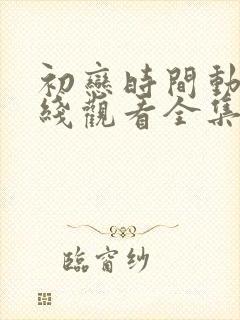 初戀時間動
綫觀看全集
臨窗纱